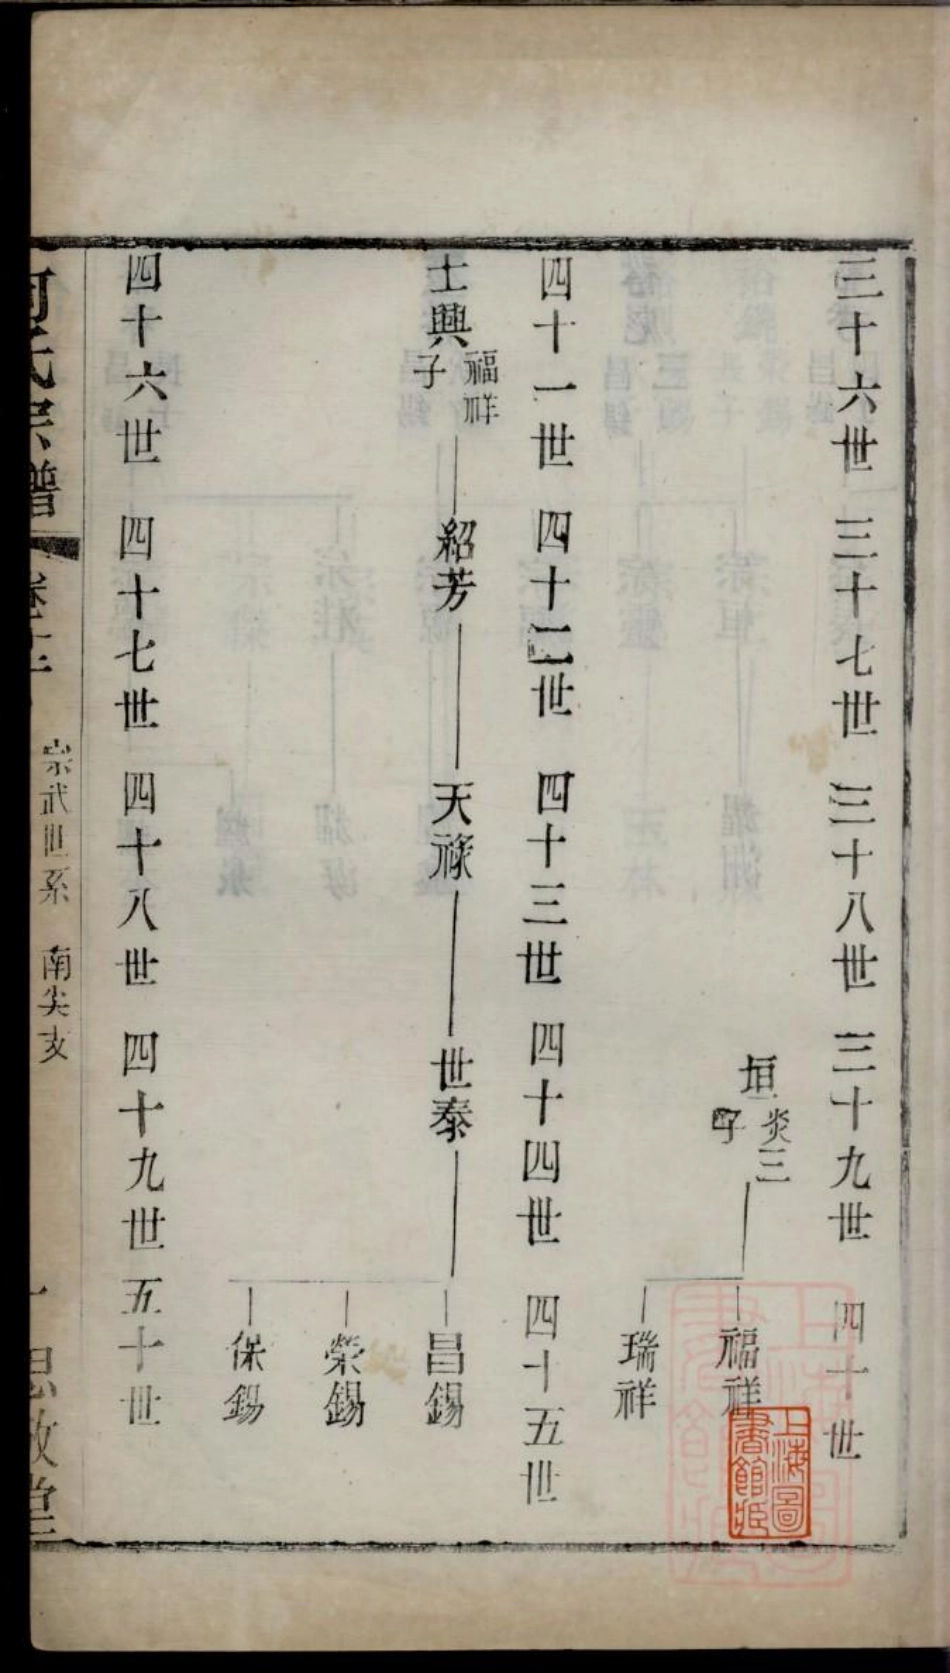 三十六世 三十七世 三十八世 三十九世 四十世
垣 炎三四子
福祥
瑞祥
四十一世 四十二世 四十三世 四十四世 四十五世
士興 福祥子 紹芳 天祿 世泰 昌錫
榮錫
保錫
四十六世 四十七世 四十八世 四十九世 五十世
氏宗譜
宗武世系 南尖亥
一
敘堂
上海圖書館藏